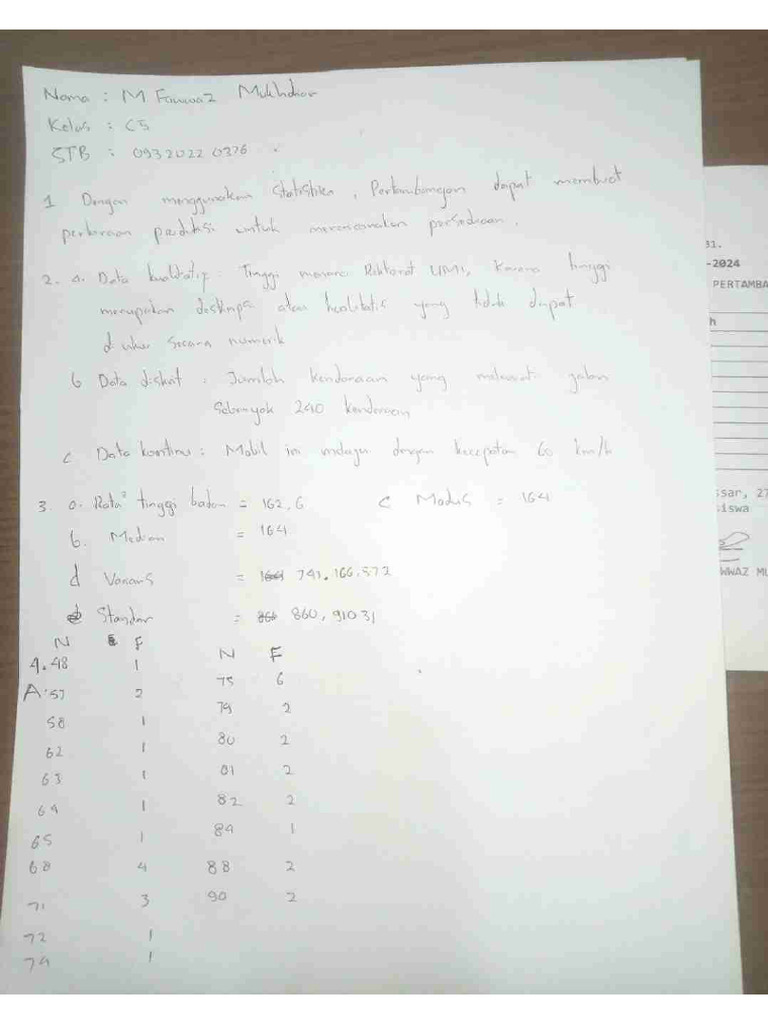 Nama : M Fawwaz Mukhdior
Kelas : C5
STB : 0932022 0376
1 Dengan menggunakan Statistika, Pertambangan dapat membuat
perkiraan produksi untuk merencanakan persediaan.
2. a. Data kualitatif : Tinggi menara Rektorat UMI, karena tinggi
merupakan deskripsi atau kualitatif yang tidak dapat
diukur secara numerik
b Data diskrit : Jumlah kendaraan yang melewati jalan
Sebanyak 240 kendaraan
c Data kontinu : Mobil ini melaju dengan kecepatan 60 km/h
3. a. Rata² tinggi badan = 162,6 c Modus = 164
b. Median = 164
d Varians = 741.166.572
Standar = 860,91031
N F N F
4. 48 1 75 6
A. 57 2 79 2
58 1 80 2
62 1 81 2
63 1 82 2
64 1 84 1
65 1 88 2
68 4 90 2
71 3
72 1
74 1
31.
-2024
PERTAMBA
h
ssar, 27
siswa
WWAZ MU